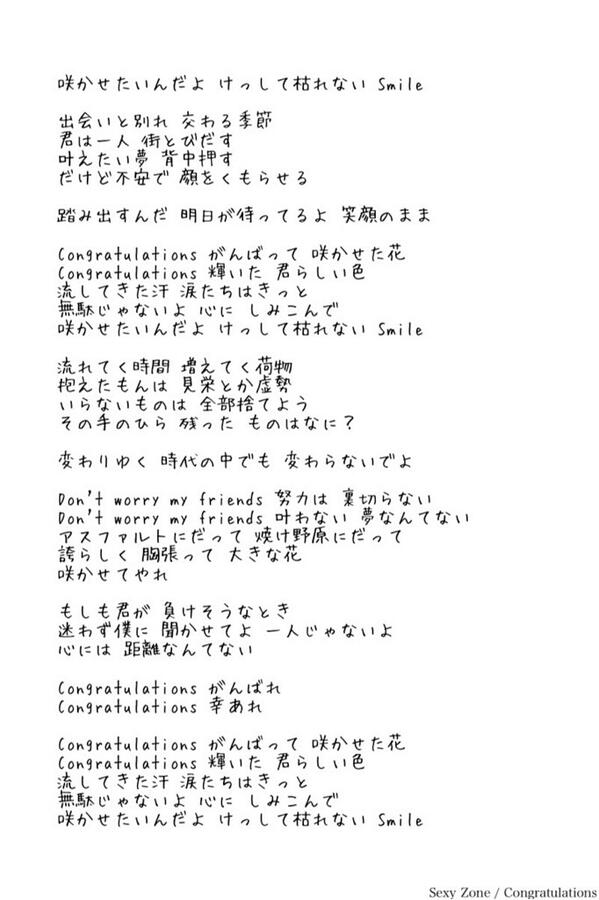 咲かせたいんだよ けっして枯れない Smile
出会いと別れ 交わる季節
君は一人 街とびだす
叶えたい夢 背中押す
だけど不安で 顔をくもらせる
踏み出すんだ 明日が待ってるよ 笑顔のまま
Congratulations がんばって 咲かせた花
Congratulations 輝いた 君らしい色
流してきた汗 涙たちはきっと
無駄じゃないよ 心に しみこんで
咲かせたいんだよ けっして枯れない Smile
流れてく時間 増えてく荷物
抱えたもんは 見栄とか虚勢
いらないものは 全部捨てよう
その手のひら 残った ものはなに？
変わりゆく 時代の中でも 変わらないでよ
Don't worry my friends 努力は 裏切らない
Don't worry my friends 叶わない 夢なんてない
アスファルトにだって 焼け野原にだって
誇らしく 胸張って 大きな花
咲かせてやれ
もしも君が 負けそうなとき
迷わず僕に 聞かせてよ 一人じゃないよ
心には 距離なんてない
Congratulations がんばれ
Congratulations 幸あれ
Congratulations がんばって 咲かせた花
Congratulations 輝いた 君らしい色
流してきた汗 涙たちはきっと
無駄じゃないよ 心に しみこんで
咲かせたいんだよ けっして枯れない Smile
Sexy Zone / Congratulations